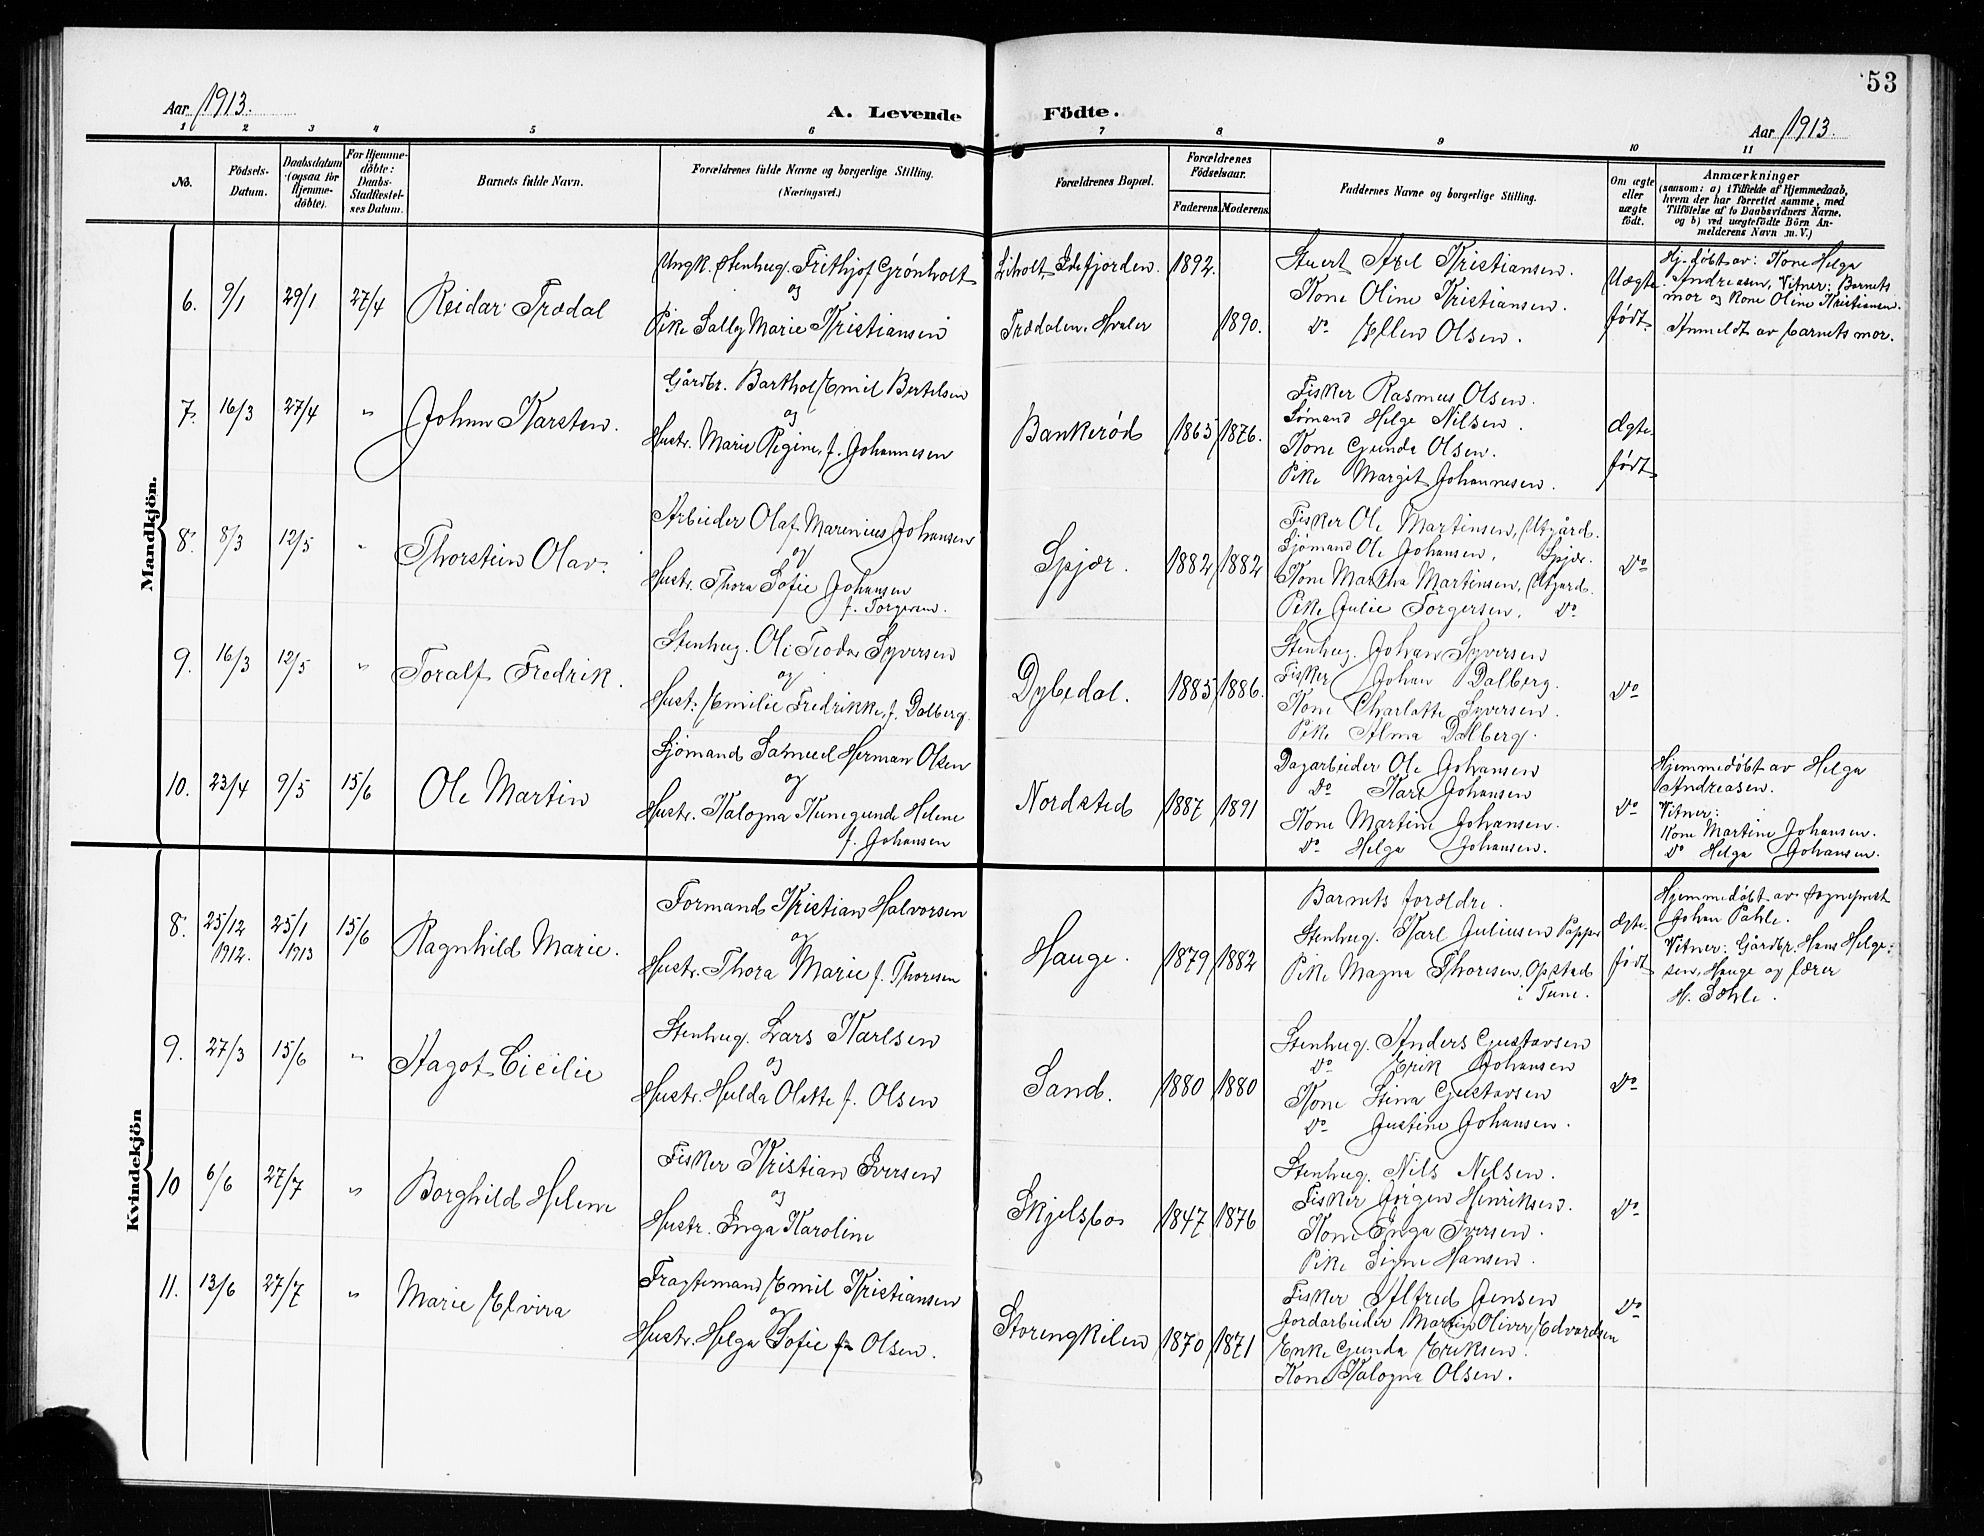 53
Aar 1913.
A. Levende Födte.
Aar 1913.
1 2 3 4 5 6 7 8 9 10 11
No.
Födsels-Datum.
Daabsdatum (ogsaa for Hjemmedöbte).
For Hjemmedöbte: Daabs-Stadfæstelses Datum.
Barnets fulde Navn.
Forældrenes fulde Navne og borgerlige Stilling. (Næringsvei.)
Forældrenes Bopæl.
Forældrenes Födselsaar.
Faderens. Moderens.
Faddernes Navne og borgerlige Stilling.
Om ægte eller uægte födt.
Anmærkninger
(saasom: a) i Tilfælde af Hjemmedaab,
hvem der har forrettet samme, med
Tilföielse af to Daabsvidners Navne,
og b) ved uægtefödte Börn An-
melderens Navn m. V.)
Mandkjön.
6. 9/1 29/1 27/4 Reidar Trædal
Ungk. stenhug. Frithjof Grønholt
og
Pike Sally Marie Kristiansen
Liholt Idefjorden. 1892.
Trædalen. Hvaler 1890.
Axel Kristiansen.
Kone Oline Kristiansen.
Do Ellen Olsen.
Uægte
født.
Hj. døbt av: Kone Helga
Andreasen, Vitner: Barnets
mor og Kone Oline Kristiansen.
Anmeldt av barnets mor.
7. 16/3 27/4 " Johan Karsten.
Gårdbr. Barthol Emil Bertelsen
og
Hustr. Marie Regine, f. Johannesen
Bankerød 1865 1876.
Fisker Rasmus Olsen.
Sømand Helge Nilsen.
Kone Gunda Olsen.
Pike Margit Johannesen.
Ægte
født
8. 8/3 12/5 " Thorstein Olav.
Arbeider Olaf Marenius Johansen
og
Hustr. Thora Sofie Johansen
f. Torgersen.
Spjær. 1882 1882
Fisker Ole Martinsen, Utgård.
Sjømand Ole Johansen, Spjær.
Kone Martha Martinsen, Utgård.
Pike Julie Torgersen, Do
Do
9. 16/3 12/5 " Toralf Fredrik.
Stenhug. Ole Teodor Syversen
og
Hust: Emilie Fredrikke, f. Dalberg.
Dybedal. 1885 1886.
Stenhug. Johan Syversen
Fisker Johan Dalberg.
Kone Charlotte Syversen.
Pike Alma Dalberg.
Do
10. 23/4 9/5 15/6 Ole Martin
Sjömand Samuel Herman Olsen
og
Hustr. Kalogna Kunegunde Helene
f. Johansen
Nordsted 1887 1891
Dagarbeider Ole Johansen
Do Karl Johansen
Kone Martine Johansen.
Do Helga Johansen.
Do
Hjemmedøbt av Helga
Andreasen.
Vitner:
Kone Martine Johansen.
Do Helga Johansen.
Kvindekjön
8. 25/12 1912. 25/1 1913 15/6 Ragnhild Marie.
Formand Kristian Halvorsen
og
Hustr. Thora Marie f. Thoresen
Hauge. 1879 1882
Barnets forældre.
Stenhug. Karl Juliusen Papper
Pike Magna Thoresen, Opstad
i Tune.
Ægte.
født
Hjemmedøbt av sogneprest
Johan Pahle.
Vitner: Gårdbr. Hans Helge-
sen, Hauge og lærer
H. Sæhle.
9. 27/3 15/6 " Aagot Cicilie
Stenhug. Lars Karlsen
og
Hustr. Hulda Olette f. Olsen
Sand. 1880 1880
Stenhug. Anders Gustavsen
Do Erik Johansen
Kone Stina Gustavsen
Do Justine Johansen.
Do
10 6/6 27/7 " Borghild Helene
Fisker Kristian Iversen
og
Hustr. Inga Karoline
Skjelsbo 1847 1876
Stenhug. Nils Nilsen.
Fisker Jörgen Henriksen.
Kone Inga Iversen.
Pike Signe Hansen.
Do
11. 13/6 27/7 " Marie Elvira
Fragtemand Emil Kristiansen
og
Hustr. Helga Sofie f. Olsen.
Storengkilen 1870 1871
Fisker Alfred Jensen
Jordarbeider Martin Oliver Edvardsen
Enke Gunda Eriksen.
Kone Kalogna Olsen.
Do